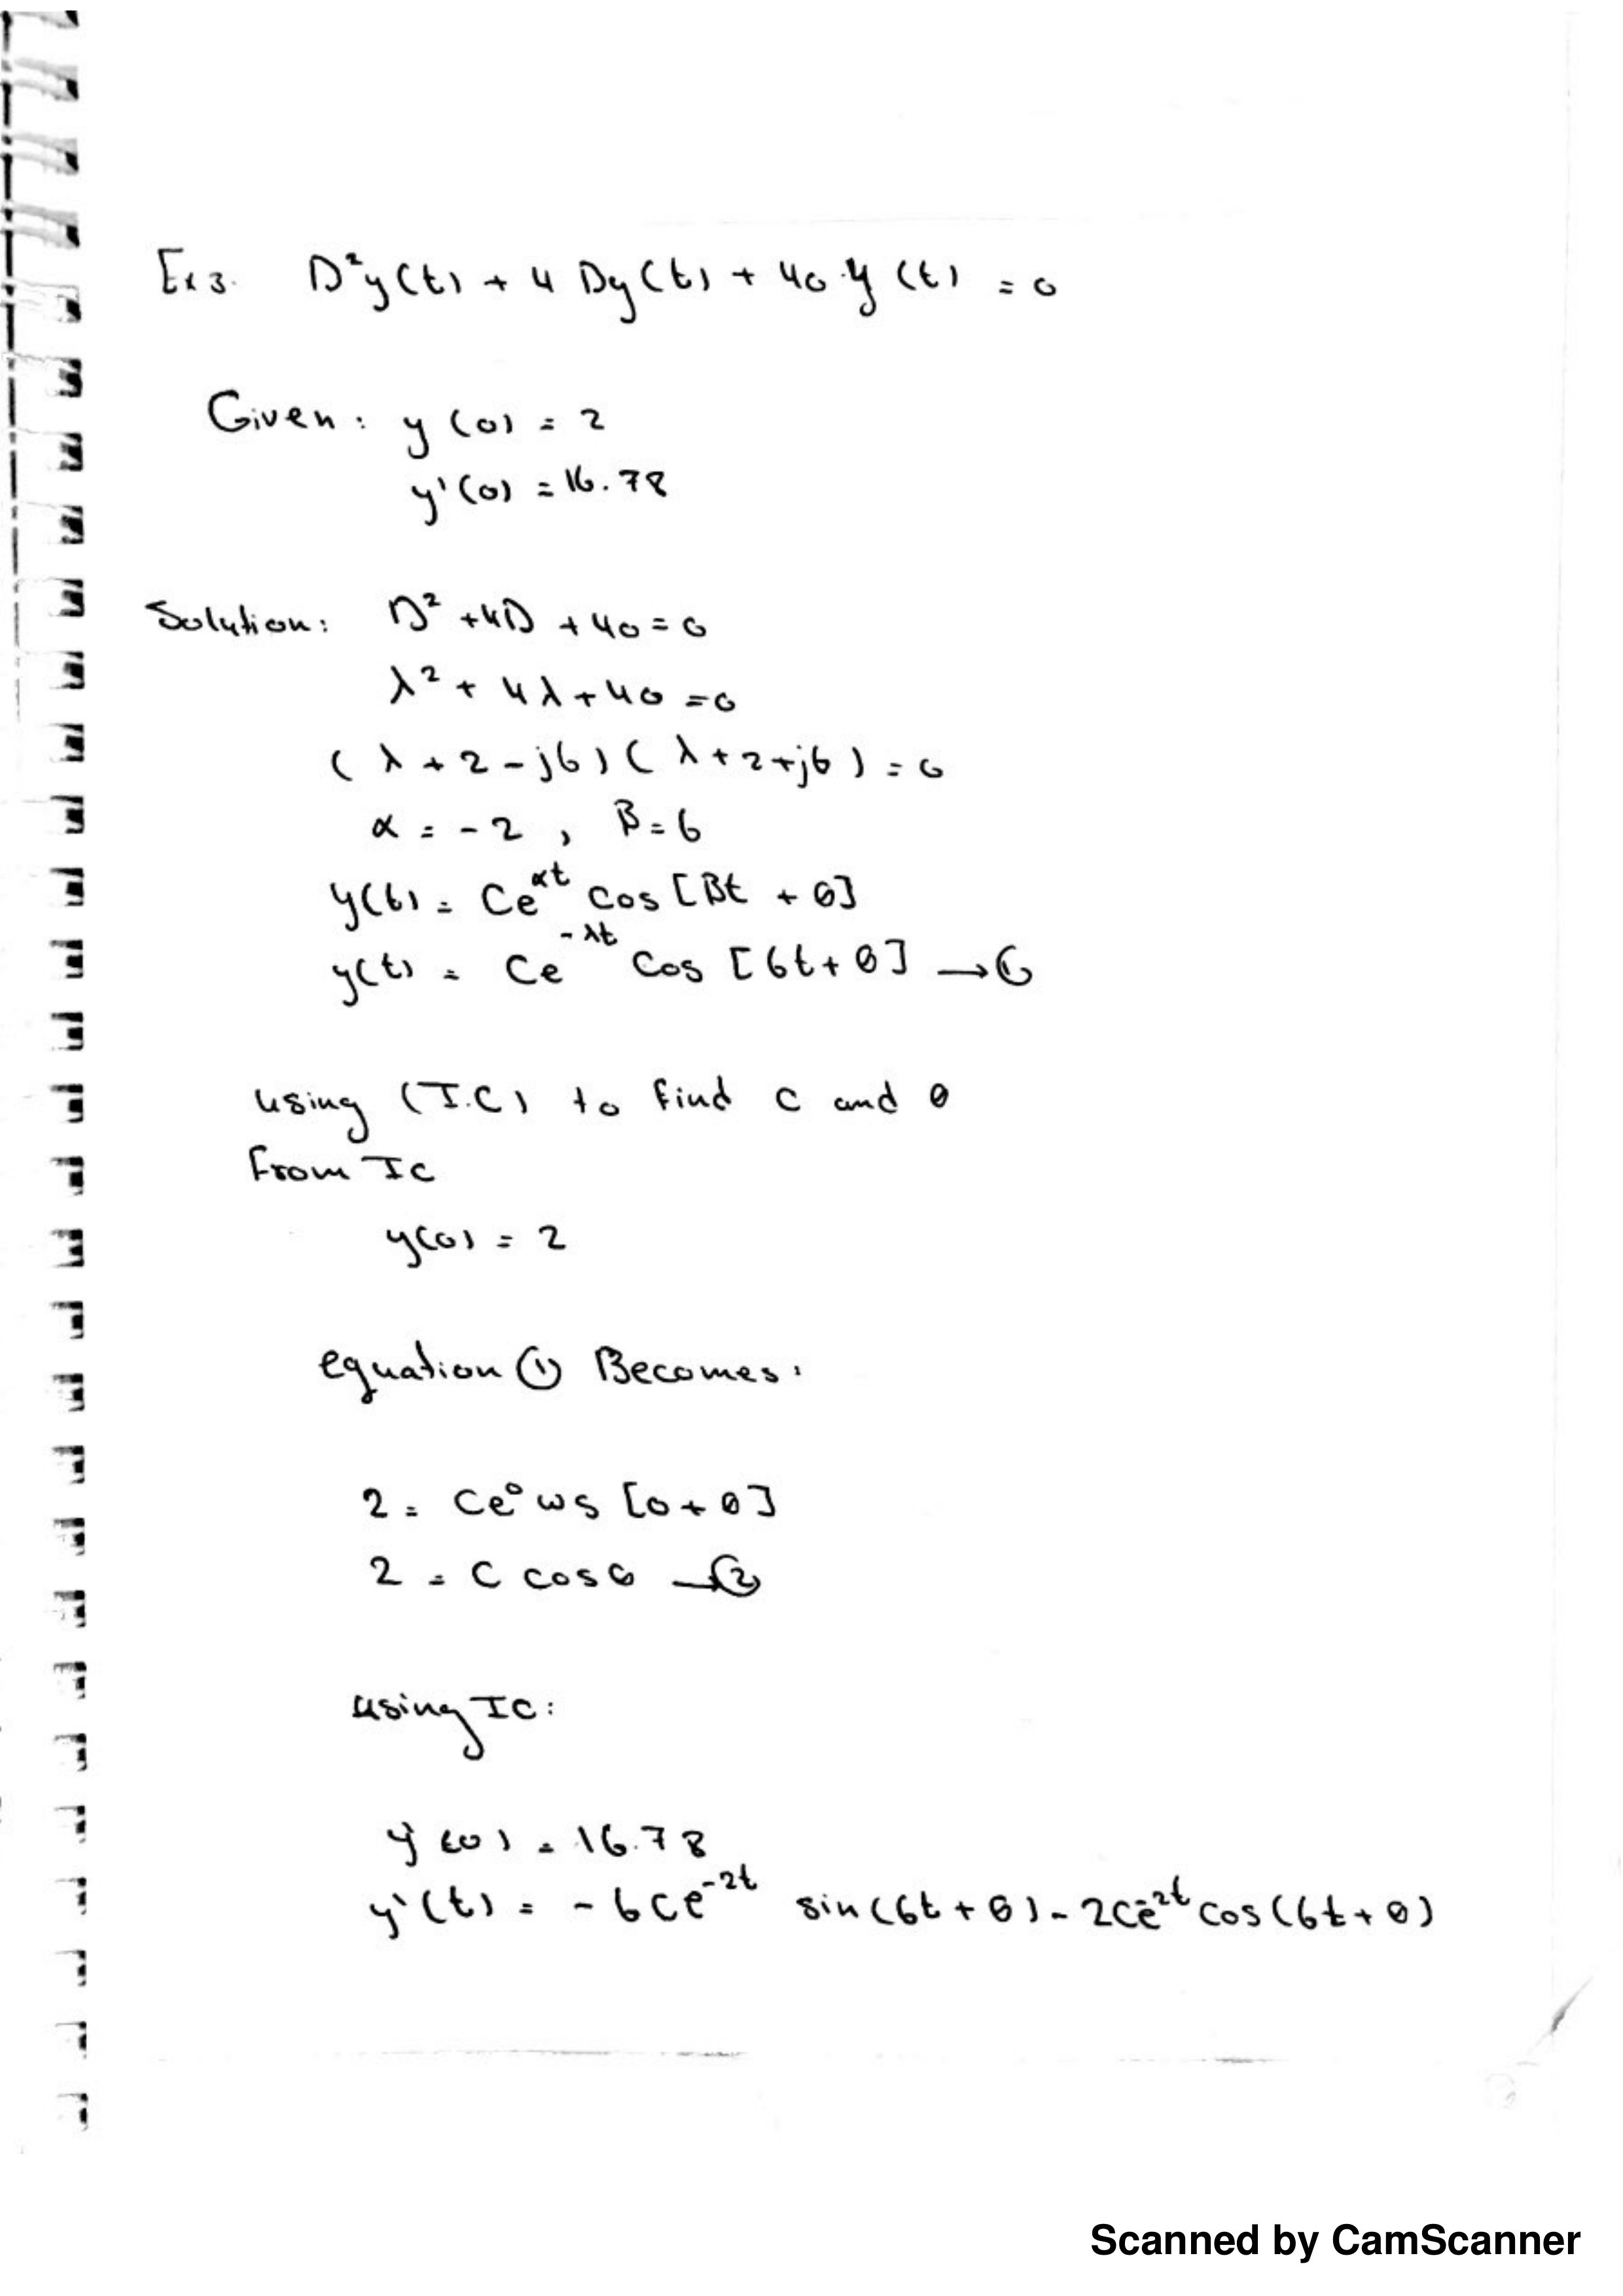 Ex 3. D²y(t) + 4 Dy(t) + 40 y(t) = 0
Given: y(0) = 2
y'(0) = 16.78
Solution: D² + 4D + 40 = 0
λ² + 4λ + 40 = 0
(λ + 2 - j6)(λ + 2 + j6) = 0
α = -2 , β = 6
y(t) = Ce^αt cos [βt + θ]
y(t) = Ce^-λt cos [6t + θ] → ①
using (I.C) to find c and θ
From IC
y(0) = 2
equation ① Becomes:
2 = Ce⁰ cos [0 + θ]
2 = C cosθ → ②
using IC:
y'(0) = 16.78
y'(t) = -6Ce^-2t sin(6t + θ) - 2Ce^-2t cos(6t + θ)
Scanned by CamScanner